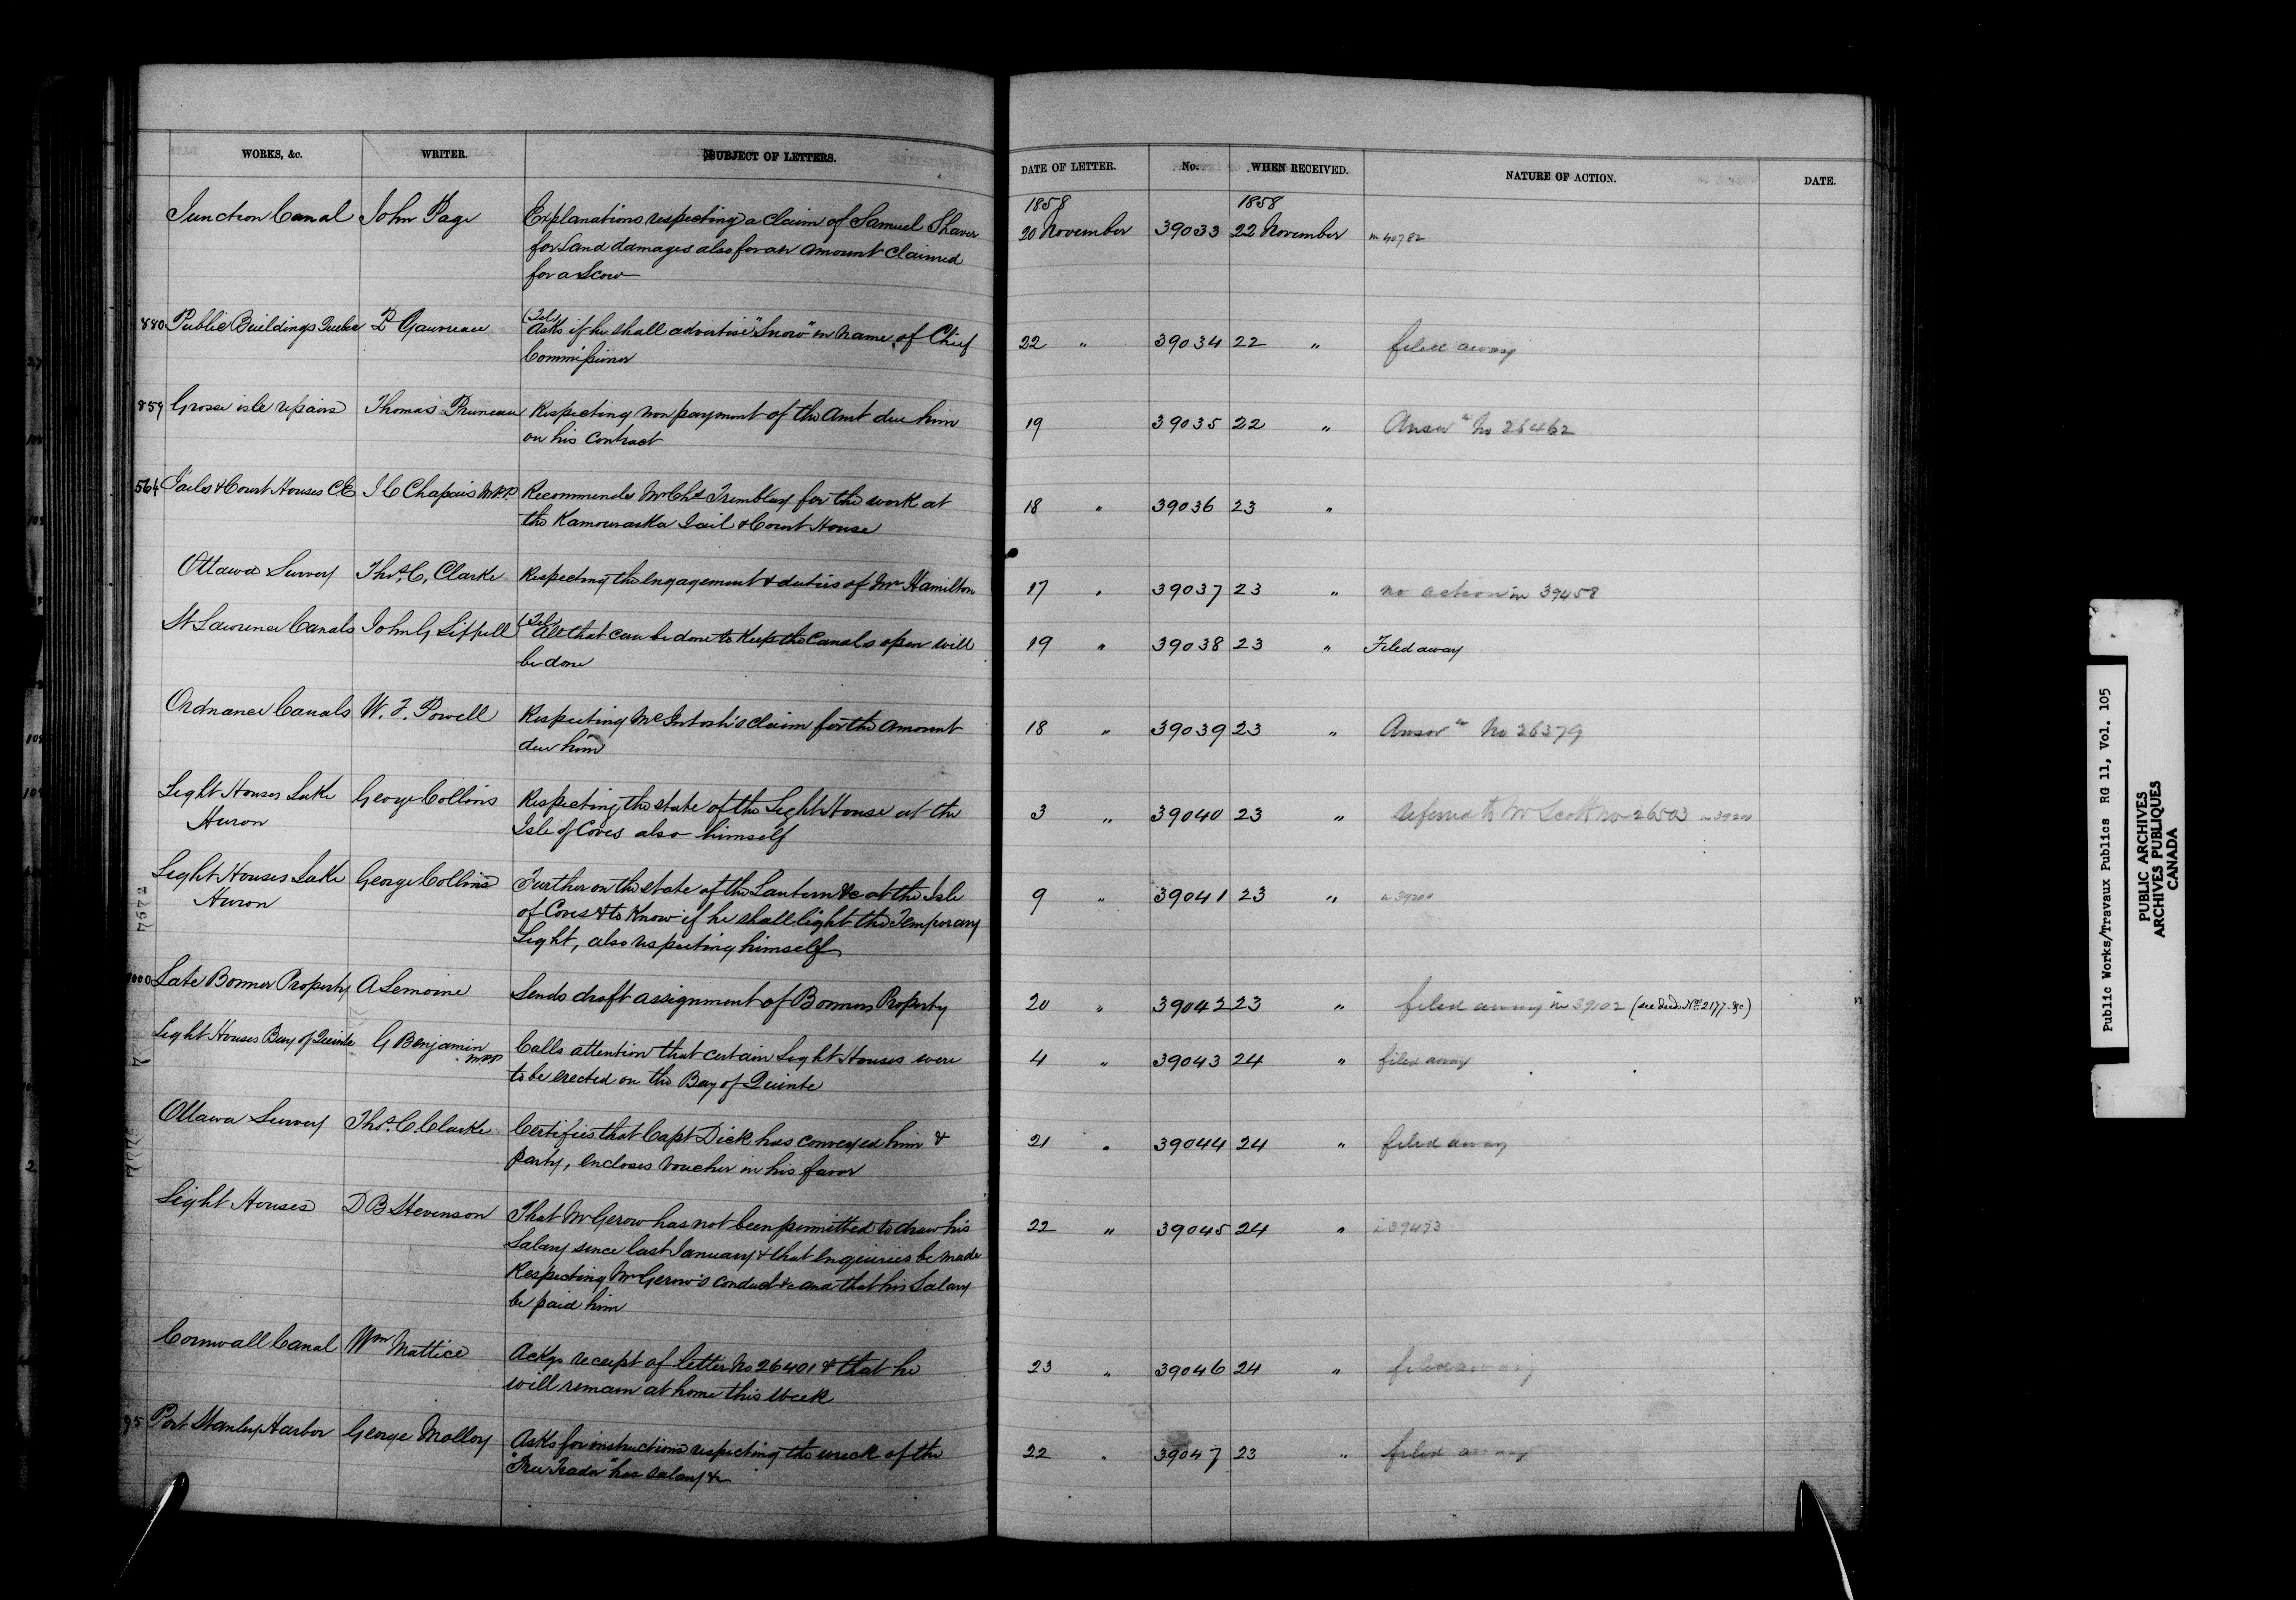 WORKS, &c. WRITER. SUBJECT OF LETTERS. DATE OF LETTER. No. WHEN RECEIVED. NATURE OF ACTION. DATE.
1858 1858
Junction Canal John Page Explanations respecting a claim of Samuel Shaver 20 November 39033 22 November in 40782
for Land damages also for an amount claimed
for a Scow
880 Public Buildings Quebec P Gauvreau (Tel) Asks if he shall advertise "Snow" in name of Chief 22 " 39034 22 " filed away
Commissioner
859 Grosse isle repairs Thomas Pruneau Respecting non payment of the Amt due him 19 39035 22 " Answd No 26462
on his contract
564 Jails & Court Houses C.E J C Chapais M.P.P Recommends Mr Chs Tremblay for the work at 18 " 39036 23 "
the Kamouraska Jail & Court House
Ottawa Survey Thos. C. Clarke Respecting the engagement & duties of Mr Hamilton 17 " 39037 23 " no action in 39458
St Lawrence Canals John G Sippell (Tel) All that can be done to keep the Canals open will 19 " 39038 23 " Filed away
be done
Ordnance Canals W. F. Powell Respecting McIntosh's claim for the amount 18 " 39039 23 " Answd No 26379
due him
Light Houses Lake George Collins Respecting the state of the Light House at the 3 " 39040 23 " referred to Mr Scott no 26503 in 39200
Huron Isle of Coves also himself
Light Houses Lake George Collins Further on the state of the Lantern &c at the Isle 9 " 39041 23 " in 39200
Huron of Coves & to know if he shall light the Temporary
Light, also respecting himself
1000 Late Bonner Property A Lemoine Sends draft assignment of Bonners Property 20 " 39042 23 " filed away in 39102 (see deed No. 2177 - &c)
Light Houses Bay of Quinte G Benjamin M.P.P Calls attention that certain Light Houses were 4 " 39043 24 " filed away
to be erected on the Bay of Quinte
Ottawa Survey Thos. C. Clarke Certifies that Capt Dick has conveyed him & 21 " 39044 24 " filed away
party, encloses voucher in his favor
Light Houses D B Stevenson That Mr Gerow has not been permitted to draw his 22 " 39045 24 " in 39473
Salary since last January & that enquiries be made
Respecting Mr Gerow's conduct &c and that his Salary
be paid him
Cornwall Canal Wm Mattice Ackgs receipt of letter No 26401 & that he 23 " 39046 24 " filed away
will remain at home this week
95 Port Stanley Harbor George Molloy Asks for instructions respecting the wreck of the 22 " 39047 23 " filed away
"Free Trader" his salary &c
Public Works/Travaux Publics RG 11, Vol. 105
PUBLIC ARCHIVES
ARCHIVES PUBLIQUES
CANADA